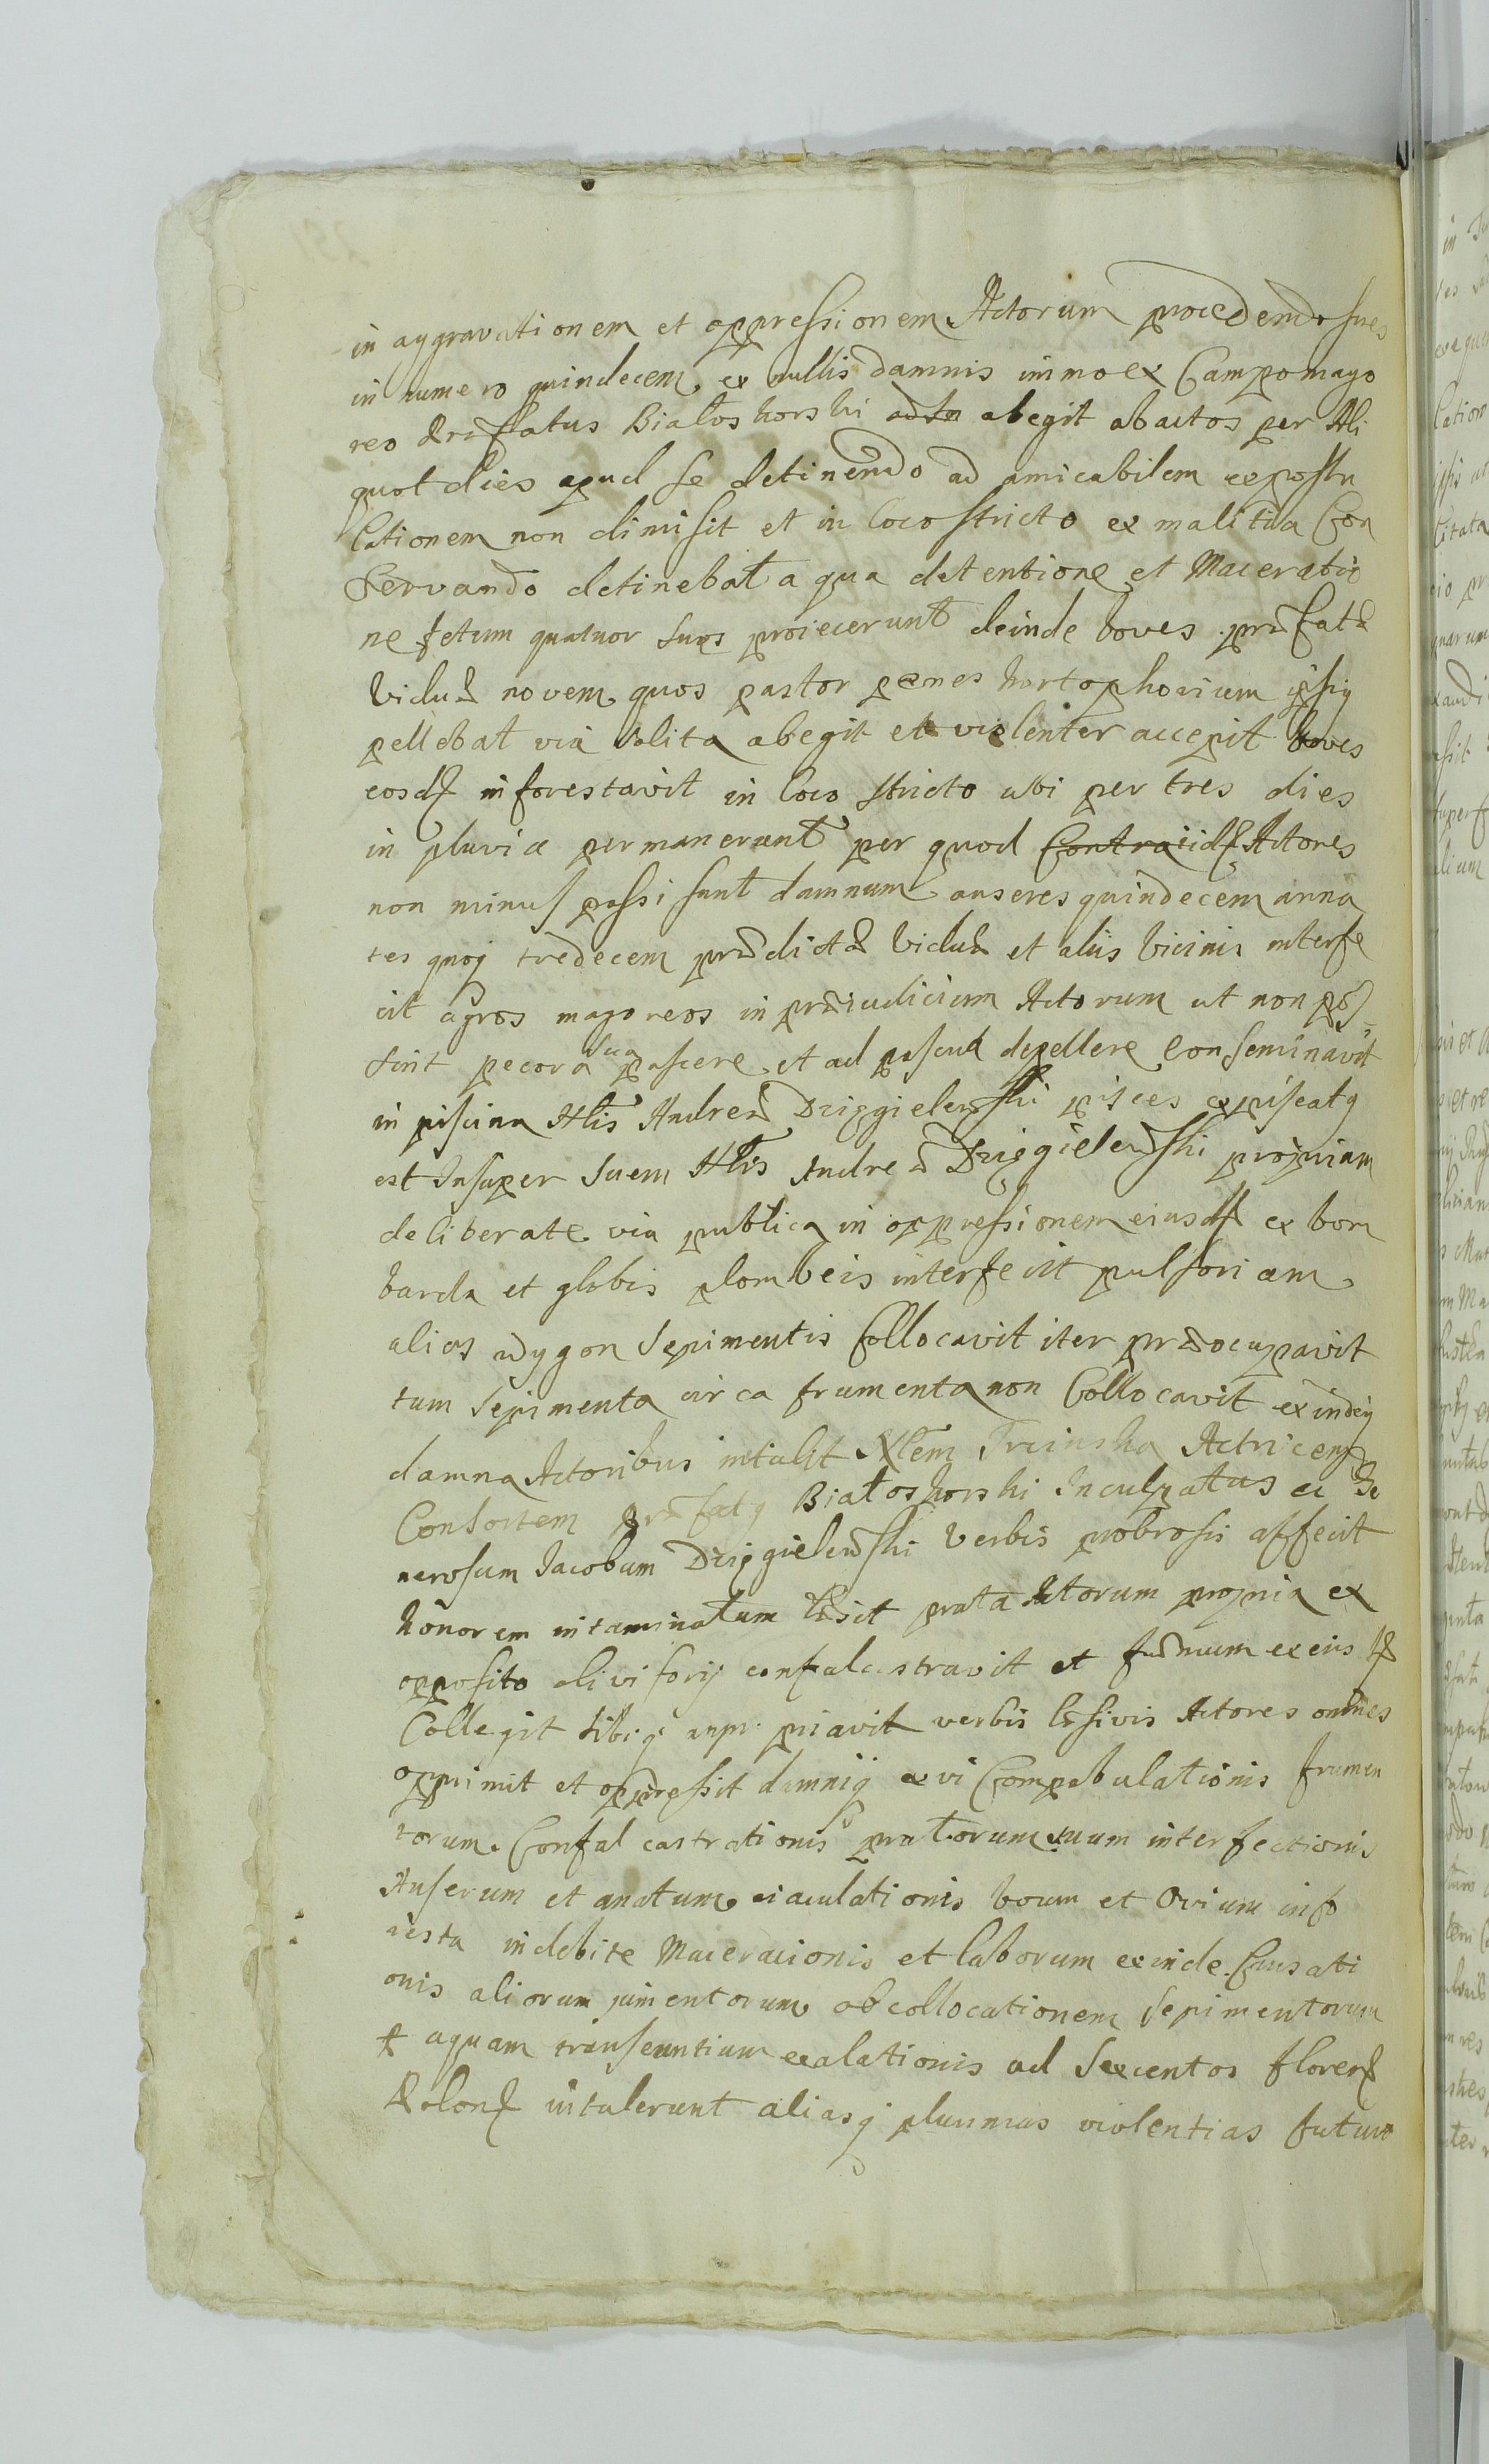 in aggravationem et oppressionem Actorum procedendo sues
in numero quindecem ex nullis damnis immo ex Campo mago
reo Præfatus Białoskorski abegit abactos per Ali
quot dies apud se detinendo ad amicabilem expostu
lationem non dimisit et in loco stricto ex malitia Con
servando detinebat a qua detentione et Maceratio
ne fetum quatuor sues proiecerunt deinde boves præfatæ
Viduæ novem quos pastor penes hortophoricum ipsiq
pellebat via solita abegit et violenter accepit boves
eosd inforestavit in loco stricto ubi per tres dies
in pluvia permanerunt per quod Contra iid Actores
non minus passi sunt damnum anseres quindecem anna
tes quoq tredecem prædictæ Viduæ et aliis Vicinis interfe
cit agros magoreos in præiudicium Actorum ut non pos
sint pecora sua pascere et ad pascua depellere conseminavit
in piscina Nlis Andreæ Dzięgielewski pisces expiscatq
est Insuper suem Nlis Andreæ Dzięgielewski propriam
deliberate via publica in oppressionem eiusd ex bom
barda et globis plombeis interfecit pulsoriam
alias wygon Sepimentis Collocavit iter præocupavit
tum Sepimenta circa frumenta non Collocavit exindeq
damna Actoribus intulit Nlem Actricem
Consortem præfatq Białoskorski Inculpatus ac Ge
nerosum Jacobum Dzięgielewski Verbis probrosis affecit
honorem intaminatum læsit prata Actorum propria ex
opposito divisorij confalcastravit et fænum ex eis
Collegit sibiq appropriavit verbis læsivis Actores omnes
opprimit et oppressit damniq ex vi Compabulationis frumen
torum Confalcastrationis pratorum suum interfectionis
Anserum et anatum eiaculationis boum et Ovium info
resta indebite Maceracionis et laborum exinde Causati
onis aliorum jumentorum ob collocationem Sepimentorum
aquam transeuntium exalationis ad Sexcentos floren
Polon intulerunt aliasq plurimas violentias